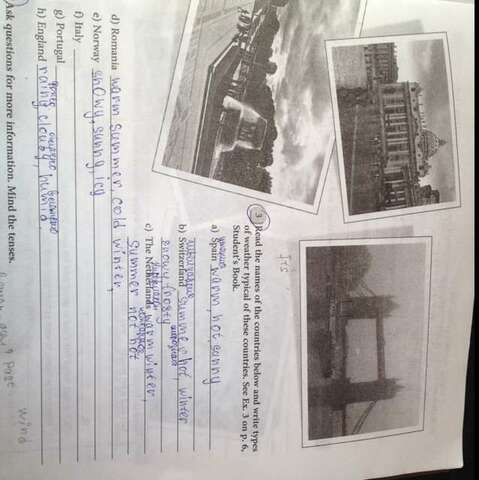 3 Read the names of the countries below and write types
of weather typical of these countries. See Ex. 3 on p. 6,
Student's Book.
It's
a) Spain warm, hot, sunny
b) Switzerland summe hot, winter
snowy, frosty
c) The Netherlands warm winter,
Summer not hot
d) Romania warm summer, cold winter,
e) Norway snowy, sunny, icy
f) Italy
g) Portugal
h) England rainy, cloudy, humid
Ask questions for more information. Mind the tenses.
wind